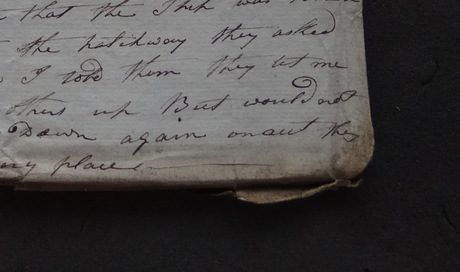 that the Ship was
the hatchway they asked
I told them they let me
others up But would not
Down again onaut they
my place